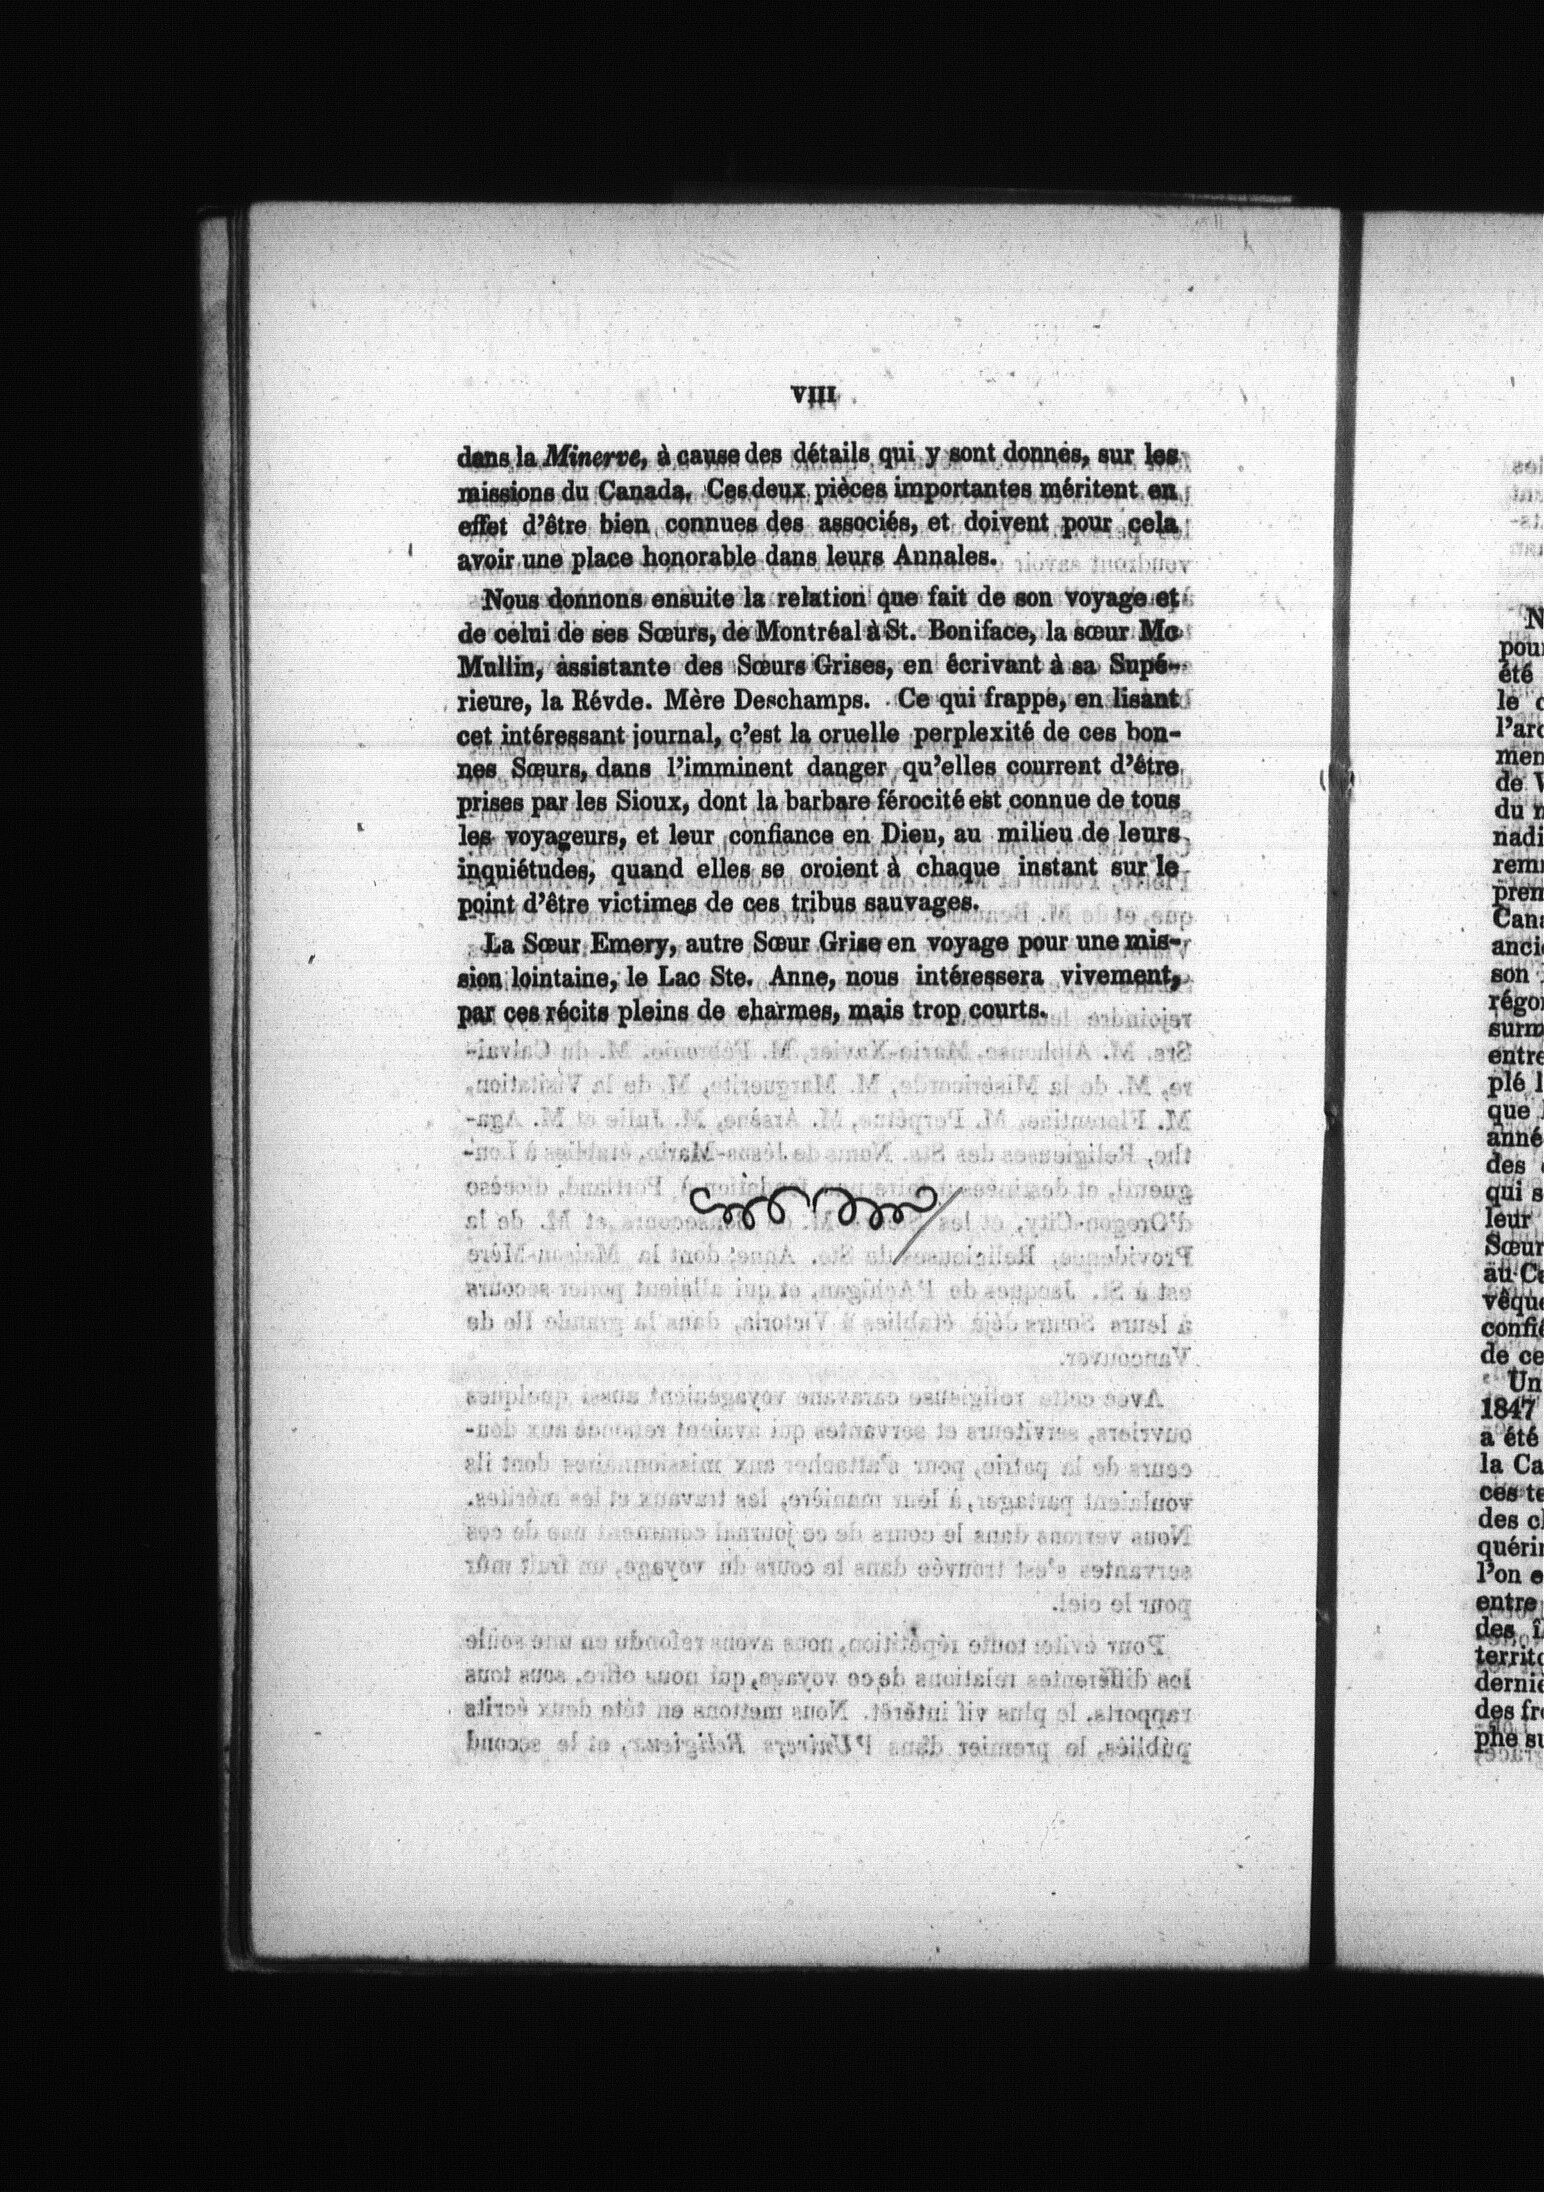 VIII
dans la Minerve, à cause des détails qui y sont donnés, sur les
missions du Canada. Ces deux pièces importantes méritent en
effet d'être bien connues des associés, et doivent pour cela
avoir une place honorable dans leurs Annales.
Nous donnons ensuite la relation que fait de son voyage et
de celui de ses Sœurs, de Montréal à St. Boniface, la sœur Mc
Mullin, assistante des Sœurs Grises, en écrivant à sa Supé-
rieure, la Révde. Mère Deschamps. Ce qui frappe, en lisant
cet intéressant journal, c'est la cruelle perplexité de ces bon-
nes Sœurs, dans l'imminent danger qu'elles courrent d'être
prises par les Sioux, dont la barbare férocité est connue de tous
les voyageurs, et leur confiance en Dieu, au milieu de leurs
inquiétudes, quand elles se croient à chaque instant sur le
point d'être victimes de ces tribus sauvages.
La Sœur Emery, autre Sœur Grise en voyage pour une mis-
sion lointaine, le Lac Ste. Anne, nous intéressera vivement,
par ces récits pleins de charmes, mais trop courts.
N
pour
été
le
l'arc
men
de V
du
nadi
rem
prem
Cana
anci
son
régo
surm
entre
plé l
que
anné
des
qui s
leur
Sœur
au Ca
vêque
confié
de ce
Un
1847
a été
la Ca
ces te
des cl
quérir
l'on e
entre
des
territo
derniè
des fro
phe su